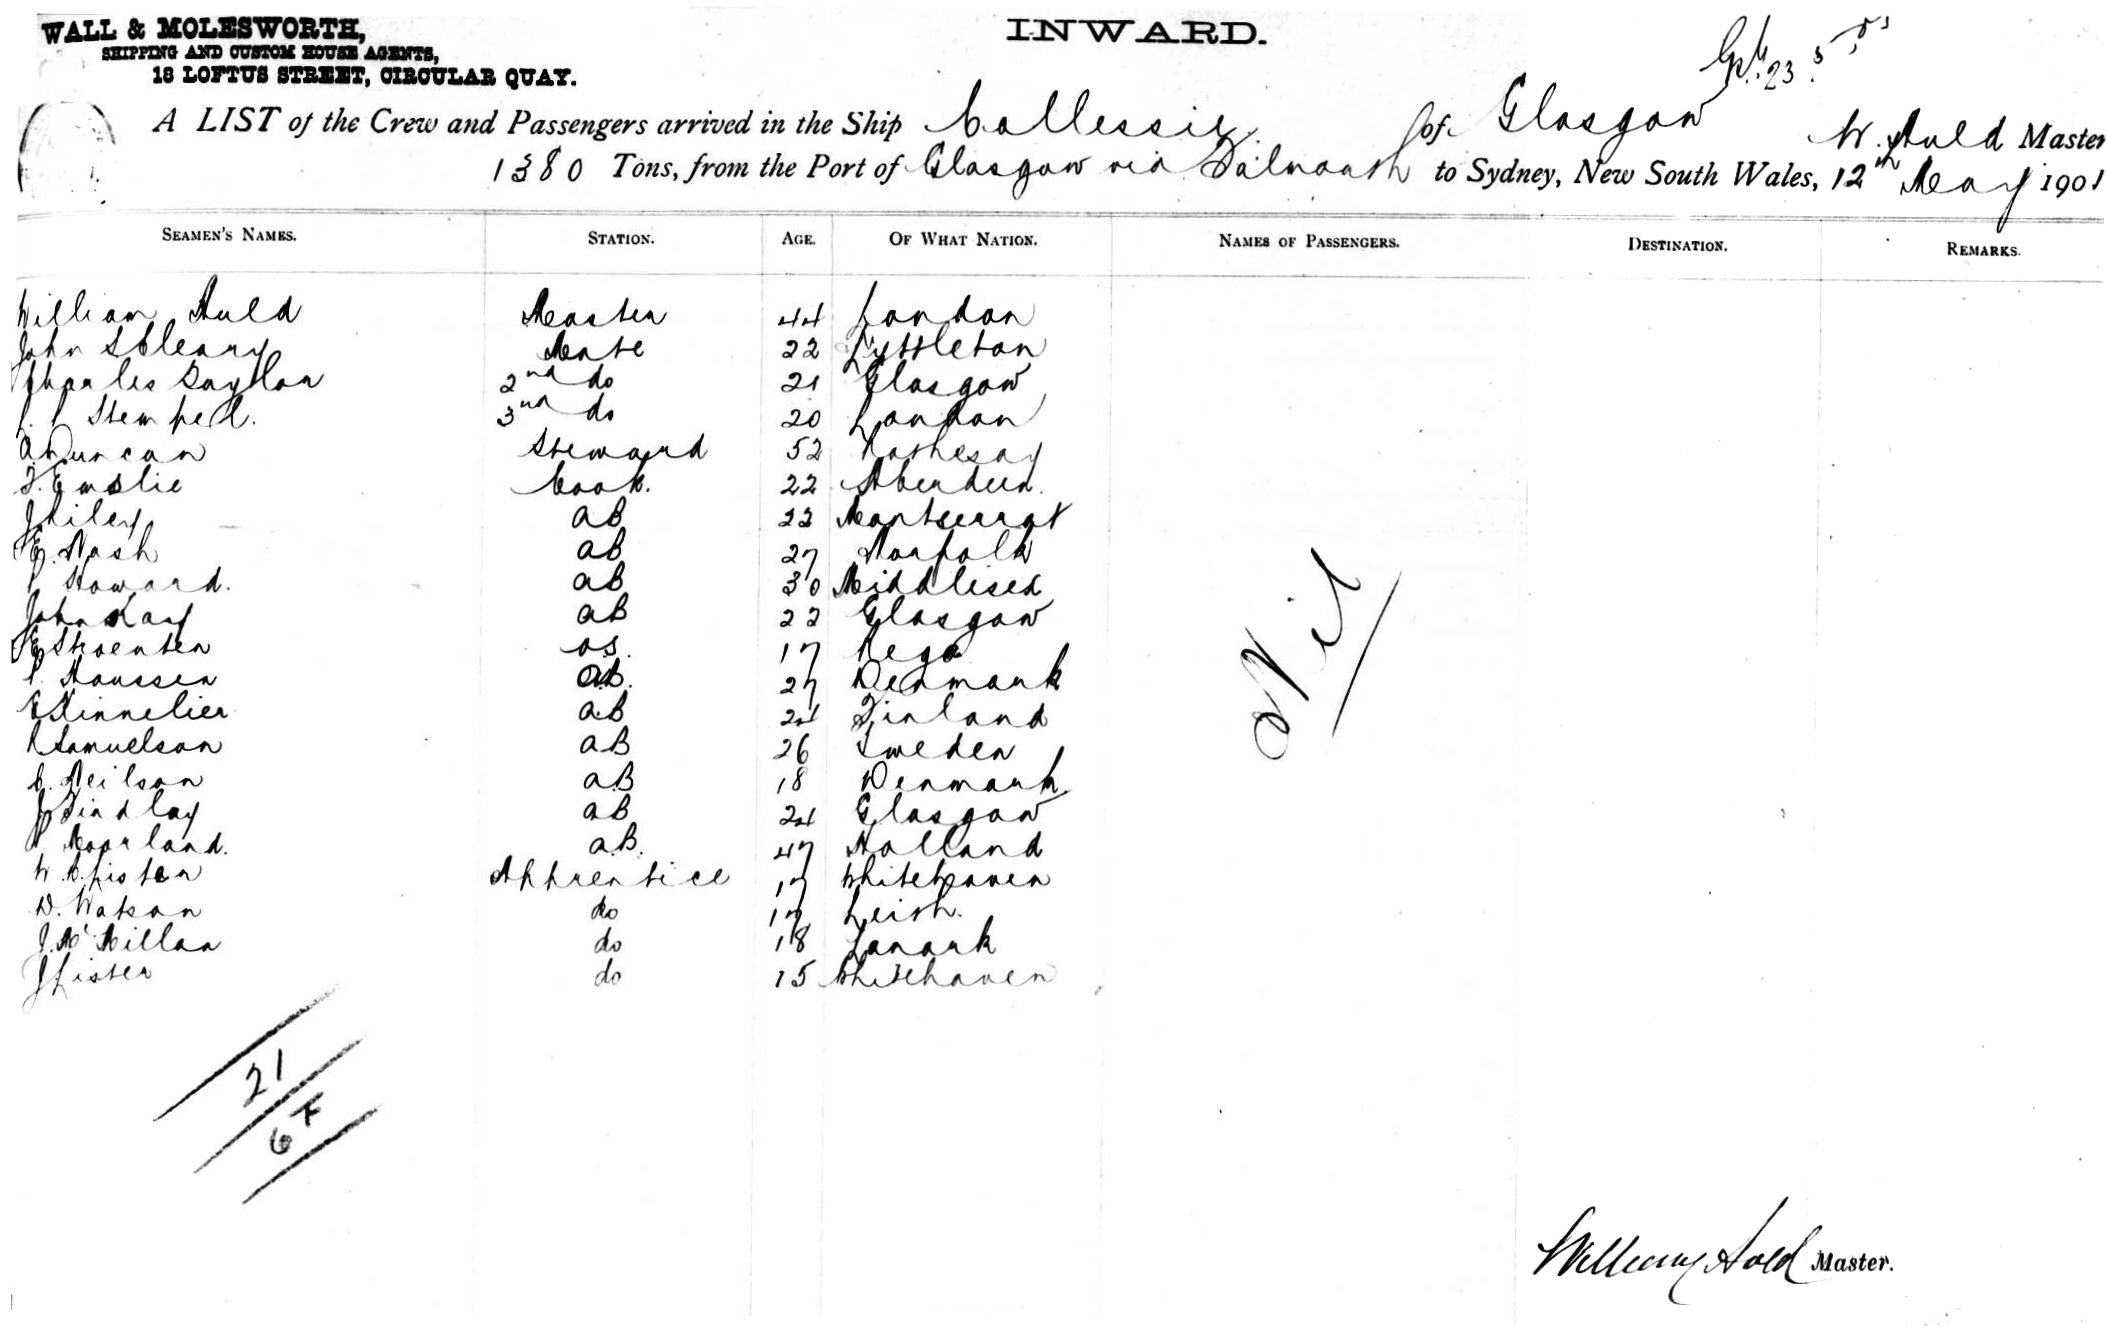 WALL & MOLESWORTH,
SHIPPING AND CUSTOM HOUSE AGENTS,
18 LOFTUS STREET, CIRCULAR QUAY.
INWARD.
A LIST of the Crew and Passengers arrived in the Ship Collessie of Glasgow W. Auld Master
1380 Tons, from the Port of Glasgow via Falmouth to Sydney, New South Wales, 12th May 1901
SEAMEN'S NAMES. STATION. AGE. OF WHAT NATION. NAMES OF PASSENGERS. DESTINATION. REMARKS.
William Auld Master 44 London
John Mate 22 Lyttleton
Charles Taylor 2nd do 21 Glasgow
Stempel. 3rd do 20 London
A Duncan Steward 52 Rothesay
F. Emslie Cook. 22 Aberdeen.
J Riley AB 22 Montserrat
E. Nash AB 27 Norfolk
Howard. AB 30 Middlisex
John Kay AB 22 Glasgow
OS. 17
Hanssen AB. 27 Denmark
AB 24 Finland
Samuelson AB 26 Sweden
C. Neilson AB 18 Denmark
J Findlay AB 24 Glasgow
Moorland. AB. 47 Holland
W. C. Lister Apprentice 17 Whitehaven
D. Watson do 17 Leith.
J. McMillan do 18 Lanark
J Lister do 15 Whitehaven
Nil
21
6
William Auld Master.